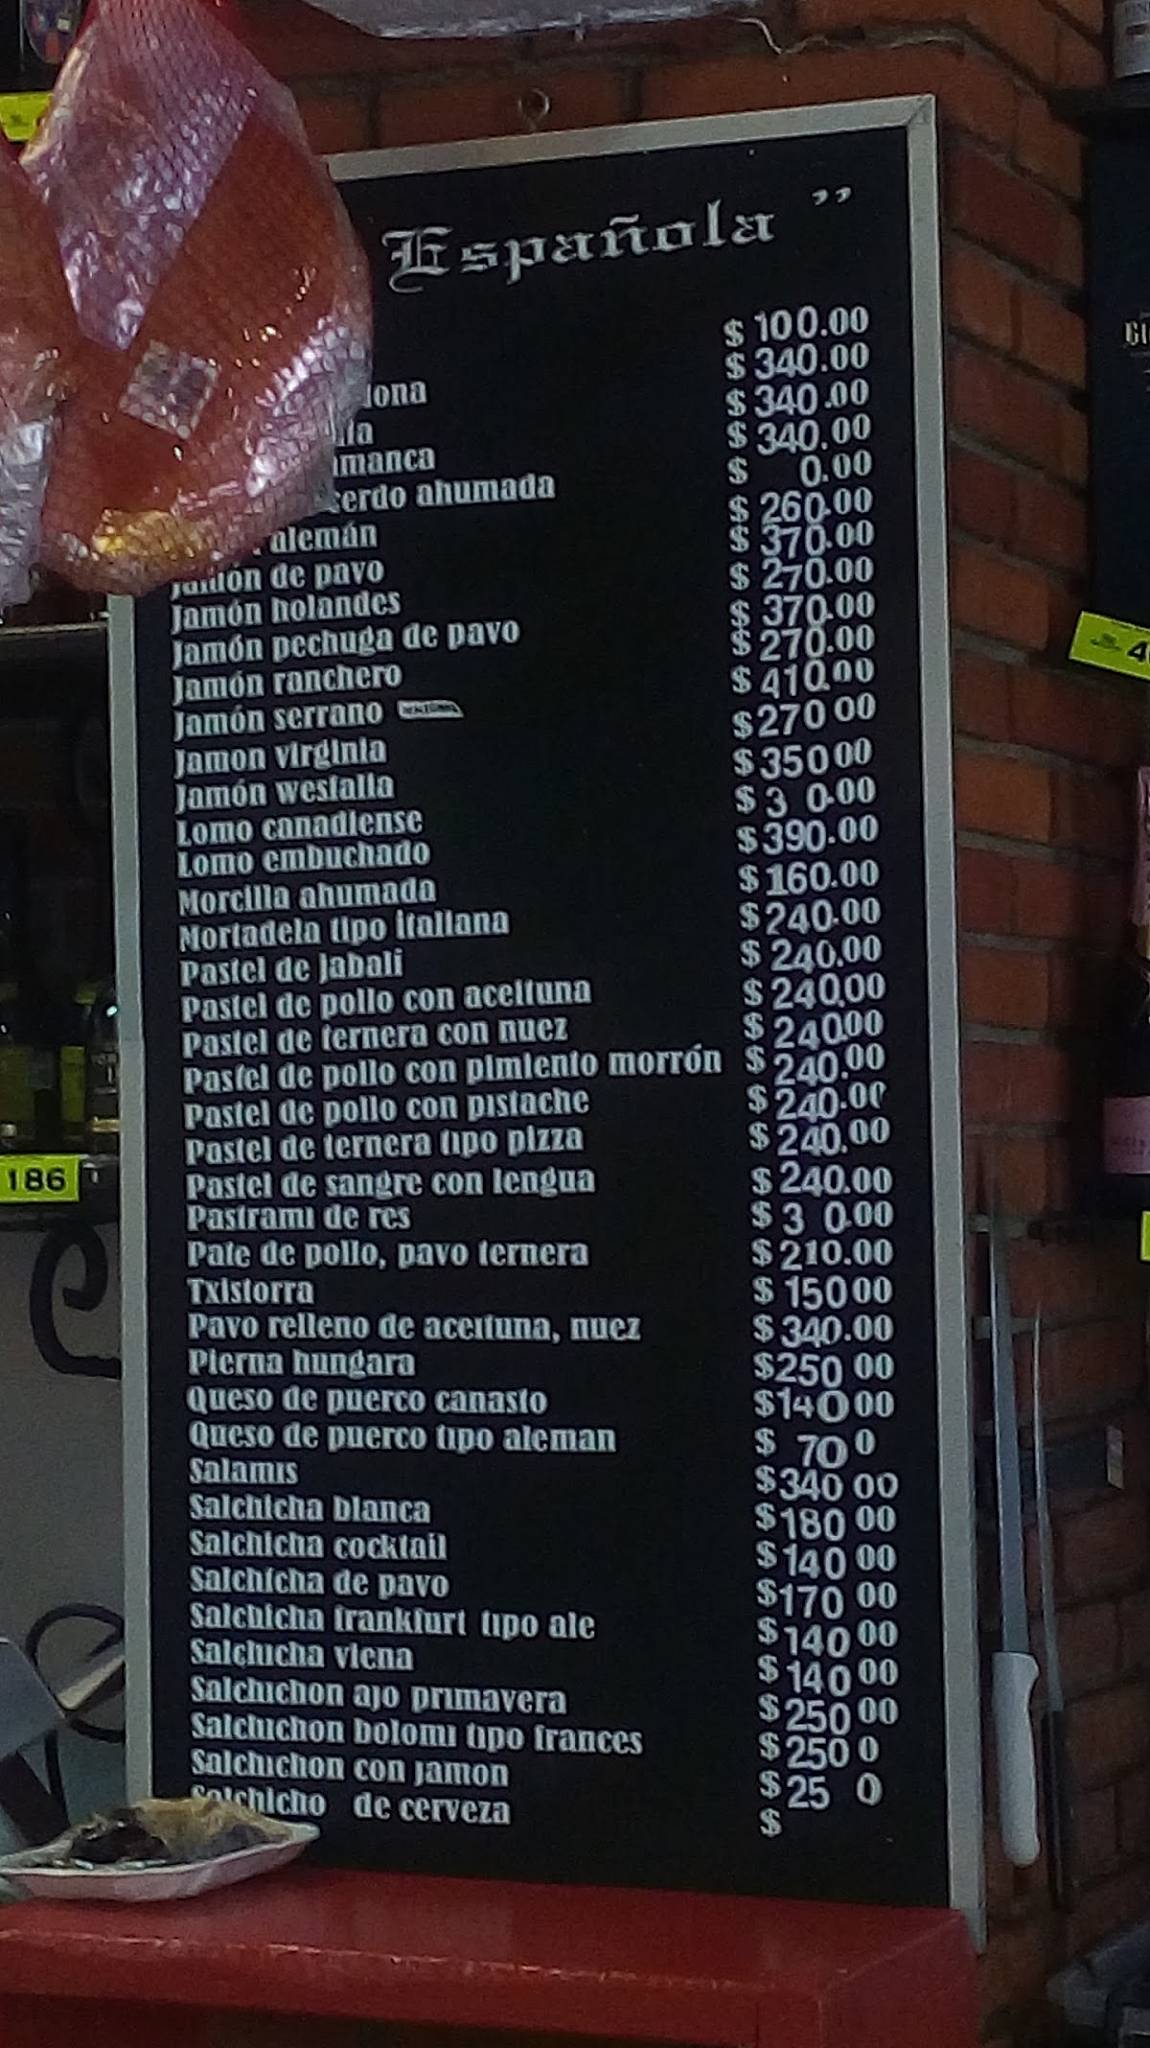 Española ”
$ 100.00
lona $ 340.00
$ 340.00
amanca $ 340.00
cerdo ahumada $ 0.00
alemán $ 260.00
Jamón de pavo $ 370.00
Jamón holandes $ 270.00
Jamón pechuga de pavo $ 370.00
Jamón ranchero $ 270.00
Jamón serrano $ 410.00
Jamon virginia $ 270 00
Jamón westfalia $ 350 00
Lomo canadiense $ 3 0.00
Lomo embuchado $ 390.00
Morcilla ahumada $ 160.00
Mortadela tipo italiana $ 240.00
Pastel de jabali $ 240.00
Pastel de pollo con aceituna $ 240.00
Pastel de ternera con nuez $ 240.00
Pastel de pollo con pimiento morrón $ 240.00
Pastel de pollo con pistache $ 240.00
Pastel de ternera tipo pizza $ 240.00
Pastel de sangre con lengua $ 240.00
Pastrami de res $ 3 0.00
Pate de pollo, pavo ternera $ 210.00
Txistorra $ 150 00
Pavo relleno de aceituna, nuez $ 340.00
Pierna hungara $ 250 00
Queso de puerco canasto $ 140 00
Queso de puerco tipo aleman $ 70 0
Salamis $ 340 00
Salchicha blanca $ 180 00
Salchicha cocktail $ 140 00
Salchicha de pavo $ 170 00
Salchicha frankfurt tipo ale $ 140 00
Salchicha viena $ 140 00
Salchichon ajo primavera $ 250 00
Salchichon bolomi tipo frances $ 250 0
Salchichon con jamon $ 25 0
Salchicho de cerveza $
186